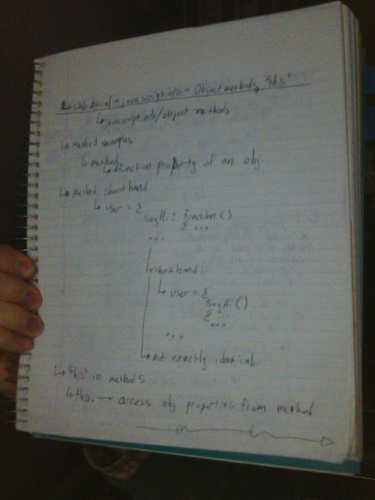 ↳ Web Devel → javascript.info → Object methods, "this"
↳ javascript.info/object-methods
↳ Method examples
↳ method
↳ function property of an obj.
↳ Method shorthand
↳ user = {
sayHi: function()
{ ...
...
↳ shorthand:
↳ user = {
sayHi()
{
...
...
↳ not exactly identical
↳ "this" in methods
↳ this. → access obj properties from method